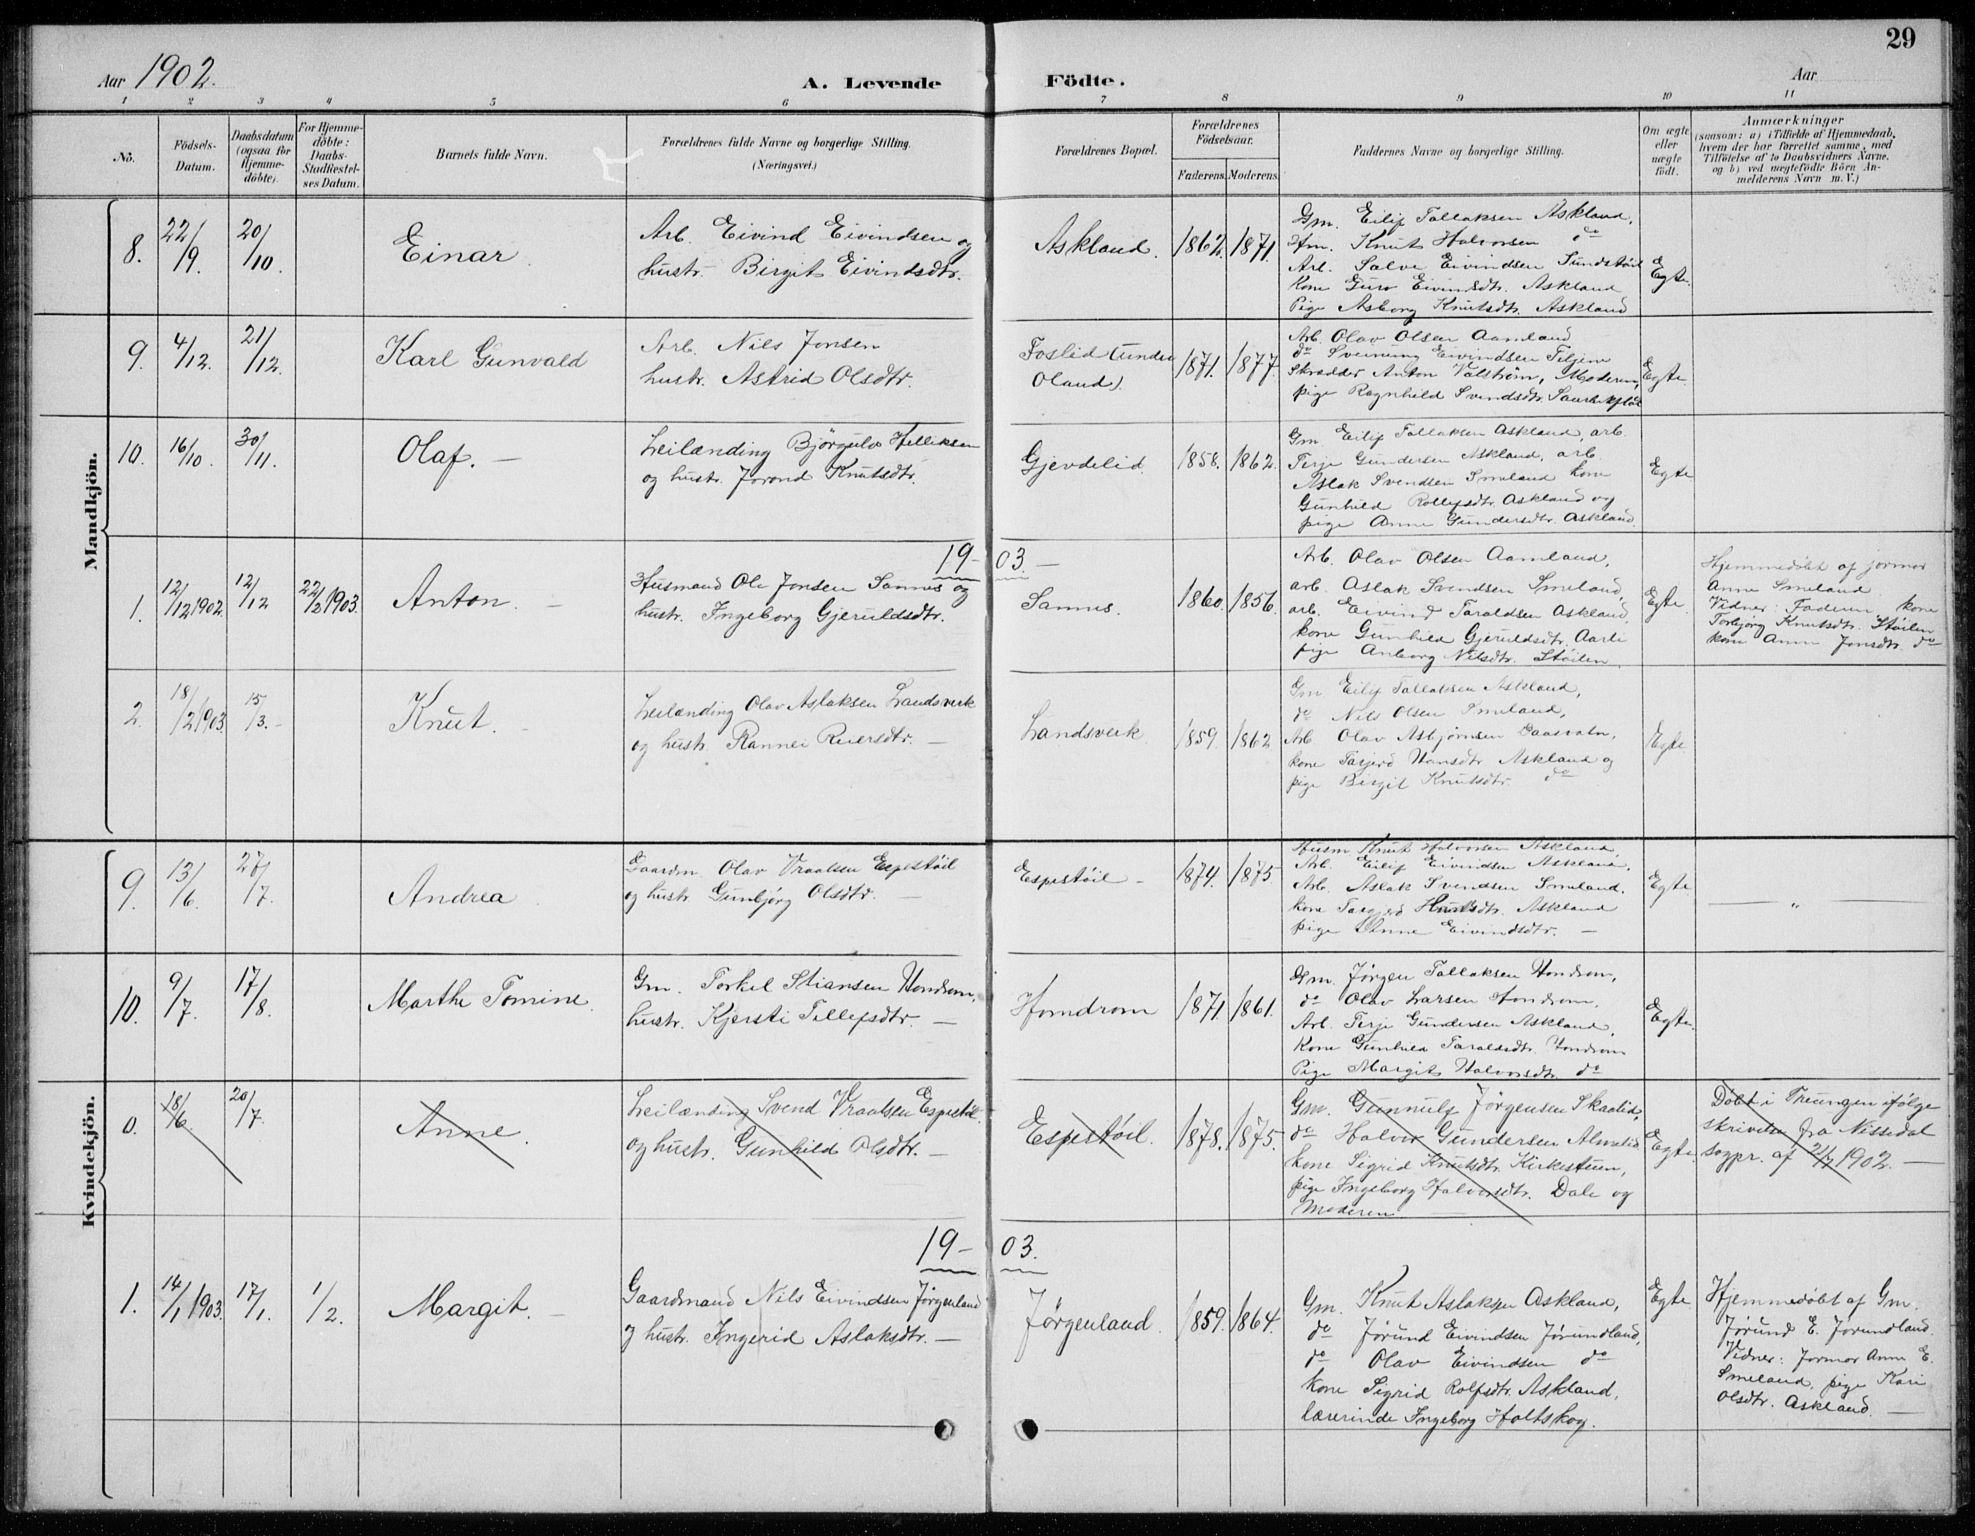 29
Aar 1902.
A. Levende Födte.
Aar
1 2 3 4 5 6 7 8 9 10 11
No.
Födsels-
Datum.
Daabsdatum
(ogsaa for
Hjemme-
döbte).
For Hjemme-
döbte:
Daabs-
Stadfæstel-
ses Datum.
Barnets fulde Navn.
Forældrenes fulde Navne og borgerlige Stilling.
(Næringsvei.)
Forældrenes Bopæl.
Forældrenes
Födselsaar.
Faderens. Moderens.
Faddernes Navne og borgerlige Stilling.
Om ægte
eller
uægte
födt.
Anmærkninger
(saasom: a) i Tilfælde af Hjemmedaab,
hvem der har forrettet samme, med
Tilföielse af to Daabsvidners Navne,
og b) ved uægtefödte Börn An-
melderens Navn m. V.)
Mandkjön.
8.
22/9.
20/10.
Einar.
Arb. Eivind Eivindsen og
hustr. Birgit Eivindsdtr.
Askland.
1862. 1871.
Gm. Eilif Tallaksen Askland,
Hm. Knut Halvorsen do
Arb. Salve Eivindsen Sundstöil
Kone Guro Eivindsdtr. Askland
Pige Asborg Knutsdtr. Askland
Egte.
9.
4/12.
21/12.
Karl Gunvald
Arb. Nils Jonsen
hustr. Astrid Olsdtr.
Foslid (under
Oland).
1871. 1877.
Arb. Olav Olsen Aamland
do Sveinung Eivindsen
Skrædder Anton Valström, Moderen,
pige Ragnhild Svendsdtr.
Egte
10.
16/10.
30/11.
Olaf. —
Leilænding Björgulv Helliksen
og hustr. Jorond Knutsdtr.
Gjevdelid
1858. 1862.
Gm. Eilif Tallaksen Askland, arb.
Terje Gundersen Askland, arb.
Aslak Svendsen Smeland kone
Gunhild Rollefsdtr. Askland og
pige Anne Gundersdtr. Askland.
Egte
19- 03. —
1.
12/12 1902.
12/12
22/2 1903.
Anton. —
Husmand Ole Jonsen Sannes og
hustr. Ingeborg Gjeruldsdtr.
Sannes.
1860. 1856.
Arb. Olav Olsen Aamland,
arb. Aslak Svendsen Smeland,
arb. Eivind Taraldsen Askland,
kone Gunhild Gjeruldsdtr. Aarli
pige Anborg Nilsdtr. Stöilen.
Egte.
Hjemmedöbt af jormor
Anne Smeland.
Vidner: Faderen, kone
Torbjörg Knutsdtr. Stöilen
kone Anne Jonsdtr. do
2.
18/2 1903
15/3. -
Knut.
Leilænding Olav Aslaksen Landsverk
og hustr. Rannei Reiersdtr. —
Landsverk
1859. 1862
Gm Eilif Tallaksen Askland,
do Nils Olsen Smeland,
Arb. Olav Asbjörnsen Daasvatn,
kone Tarjerd Hansdtr. Askland og
pige Birgit Knutsdtr. do
Egte
Kvindekjön.
9.
13/6.
27/7.
Andrea
Gaardm. Olav Vraalsen Espestöil
og hustr. Gunbjörg Olsdtr. —
Espestöil -
1874. 1875.
Husm Knut Halvorsen Askland
Arb. Eilif Eivindsen Askland.
Arb. Aslak Svendsen Smeland.
kone Targjerd Askland
pige Anne Eivindsdtr. —
Egte.
— „ —
10.
9/7.
17/8.
Marthe Tomine.
Gm. Torkel Stiansen Homdrom,
hustr. Kjersti Tellefsdtr. —
Homdrom
1871. 1861.
Gm. Jörgen Tallaksen Homdrom,
do Olav Larsen Homdrom,
Arb. Terje Gundersen Askland,
Kone Gunhild Taraldsdtr. Homdrom
Pige Margit Halvorsdtr. do
Egte.
0.
18/6
20/7.
Anne.
Leilænding Svend Vraalsen Espestöil
og hustr. Gunhild Olsdtr. —
Espestöil.
1878. 1875.
Gm. Gunnulf Jörgensen Skaalid,
do Halvor Gundersen
kone Sigrid Knutsdtr. Kirkestuen,
pige Ingeborg Halvorsdtr. Dale og
Moderen
Egte.
Döbt i Treungen ifölge
skrivelse fra Nissedal
sogpr. af 21/7 1902. —
19- 03.
1.
14/1 1903.
17/1.
1/2.
Margit. —
Gaardmand Nils Eivindsen Jörgenland
og hustr. Ingerid Aslaksdtr. —
Jörgenland.
1859. 1864.
Gm. Knut Aslaksen Askland,
do Jörund Eivindsen Jörundland,
do Olav Eivindsen do
kone Sigrid Rolfsdtr. Askland,
lærerinde Ingeborg Holtskog.
Egte
Hjemmedöbt af Gm.
Jörund E. Jorundland.
Vidner: Jormor Anne E.
Smeland, pige Kari
Olsdtr. Askland. —